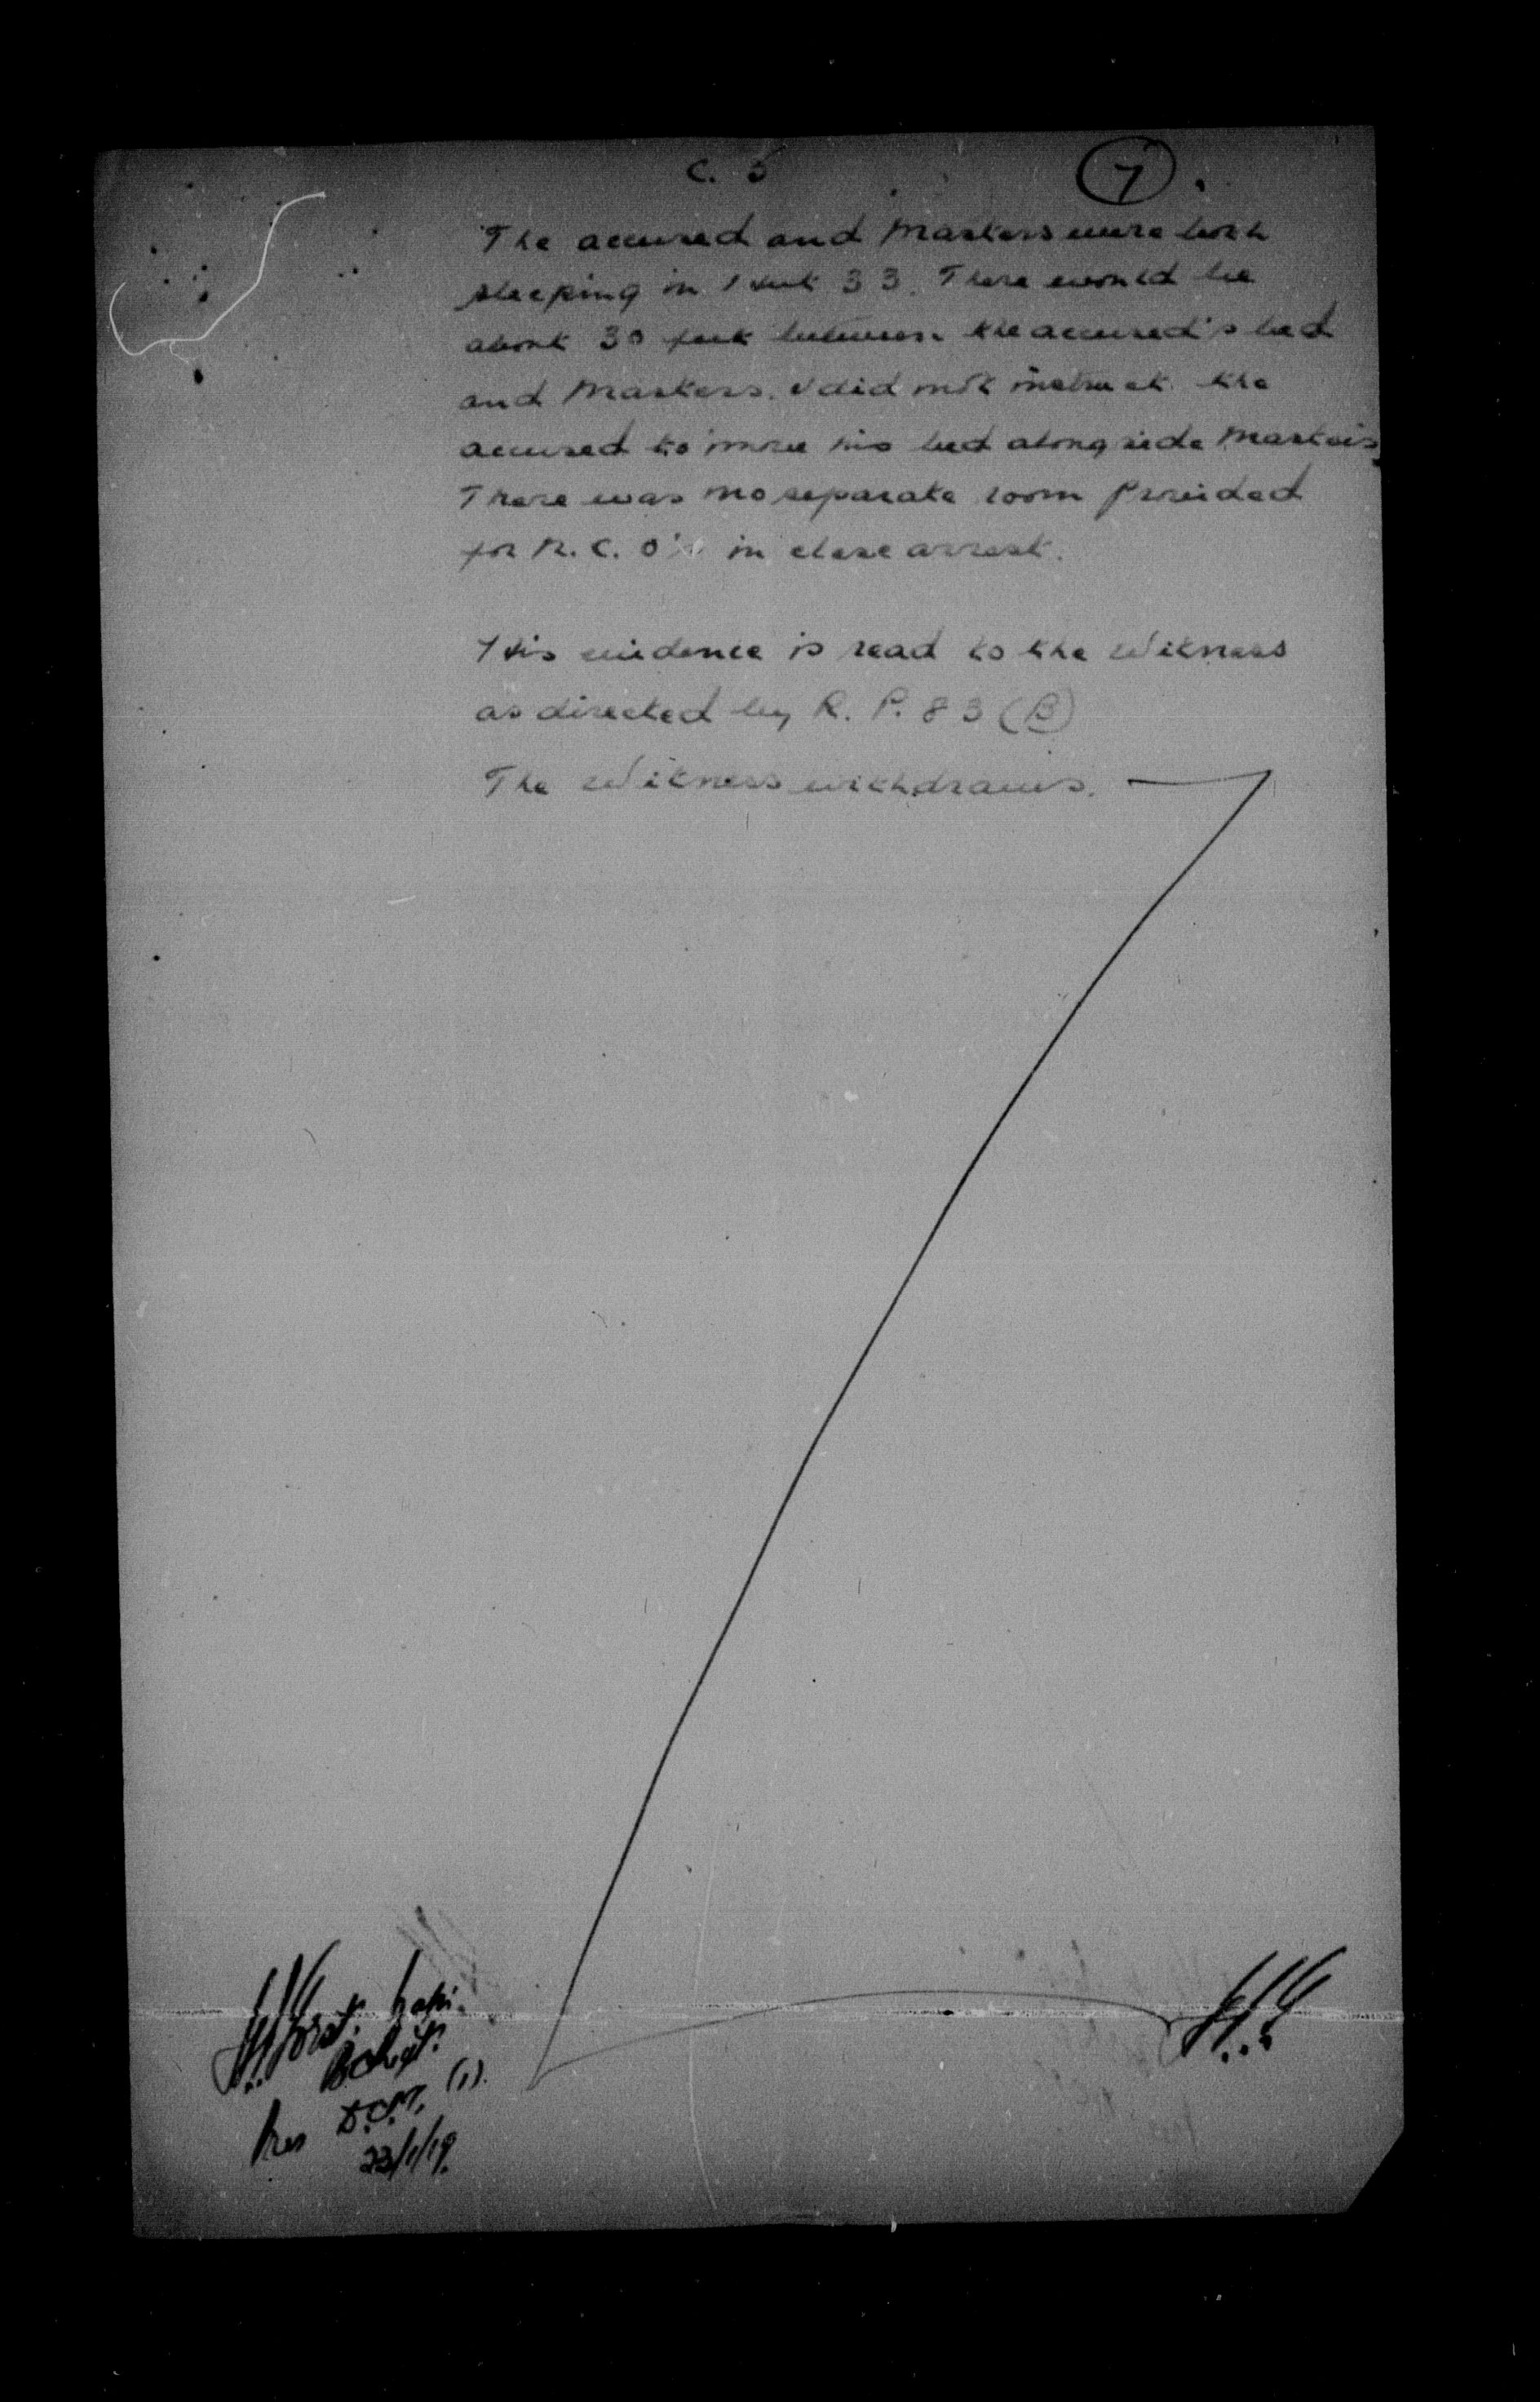 C. 5
7.
The accused and Masters were both
sleeping in Hut 33. There would be
about 30 feet between the accused's bed
and Masters. I did not instruct the
accused to move his bed alongside Masters
There was no separate room provided
for N.C.O's in close arrest.
This evidence is read to the Witness
as directed by R.P. 83 (B)
The Witness withdraws.
Capt.
Pres D.C.M. (1).
23/1/19.